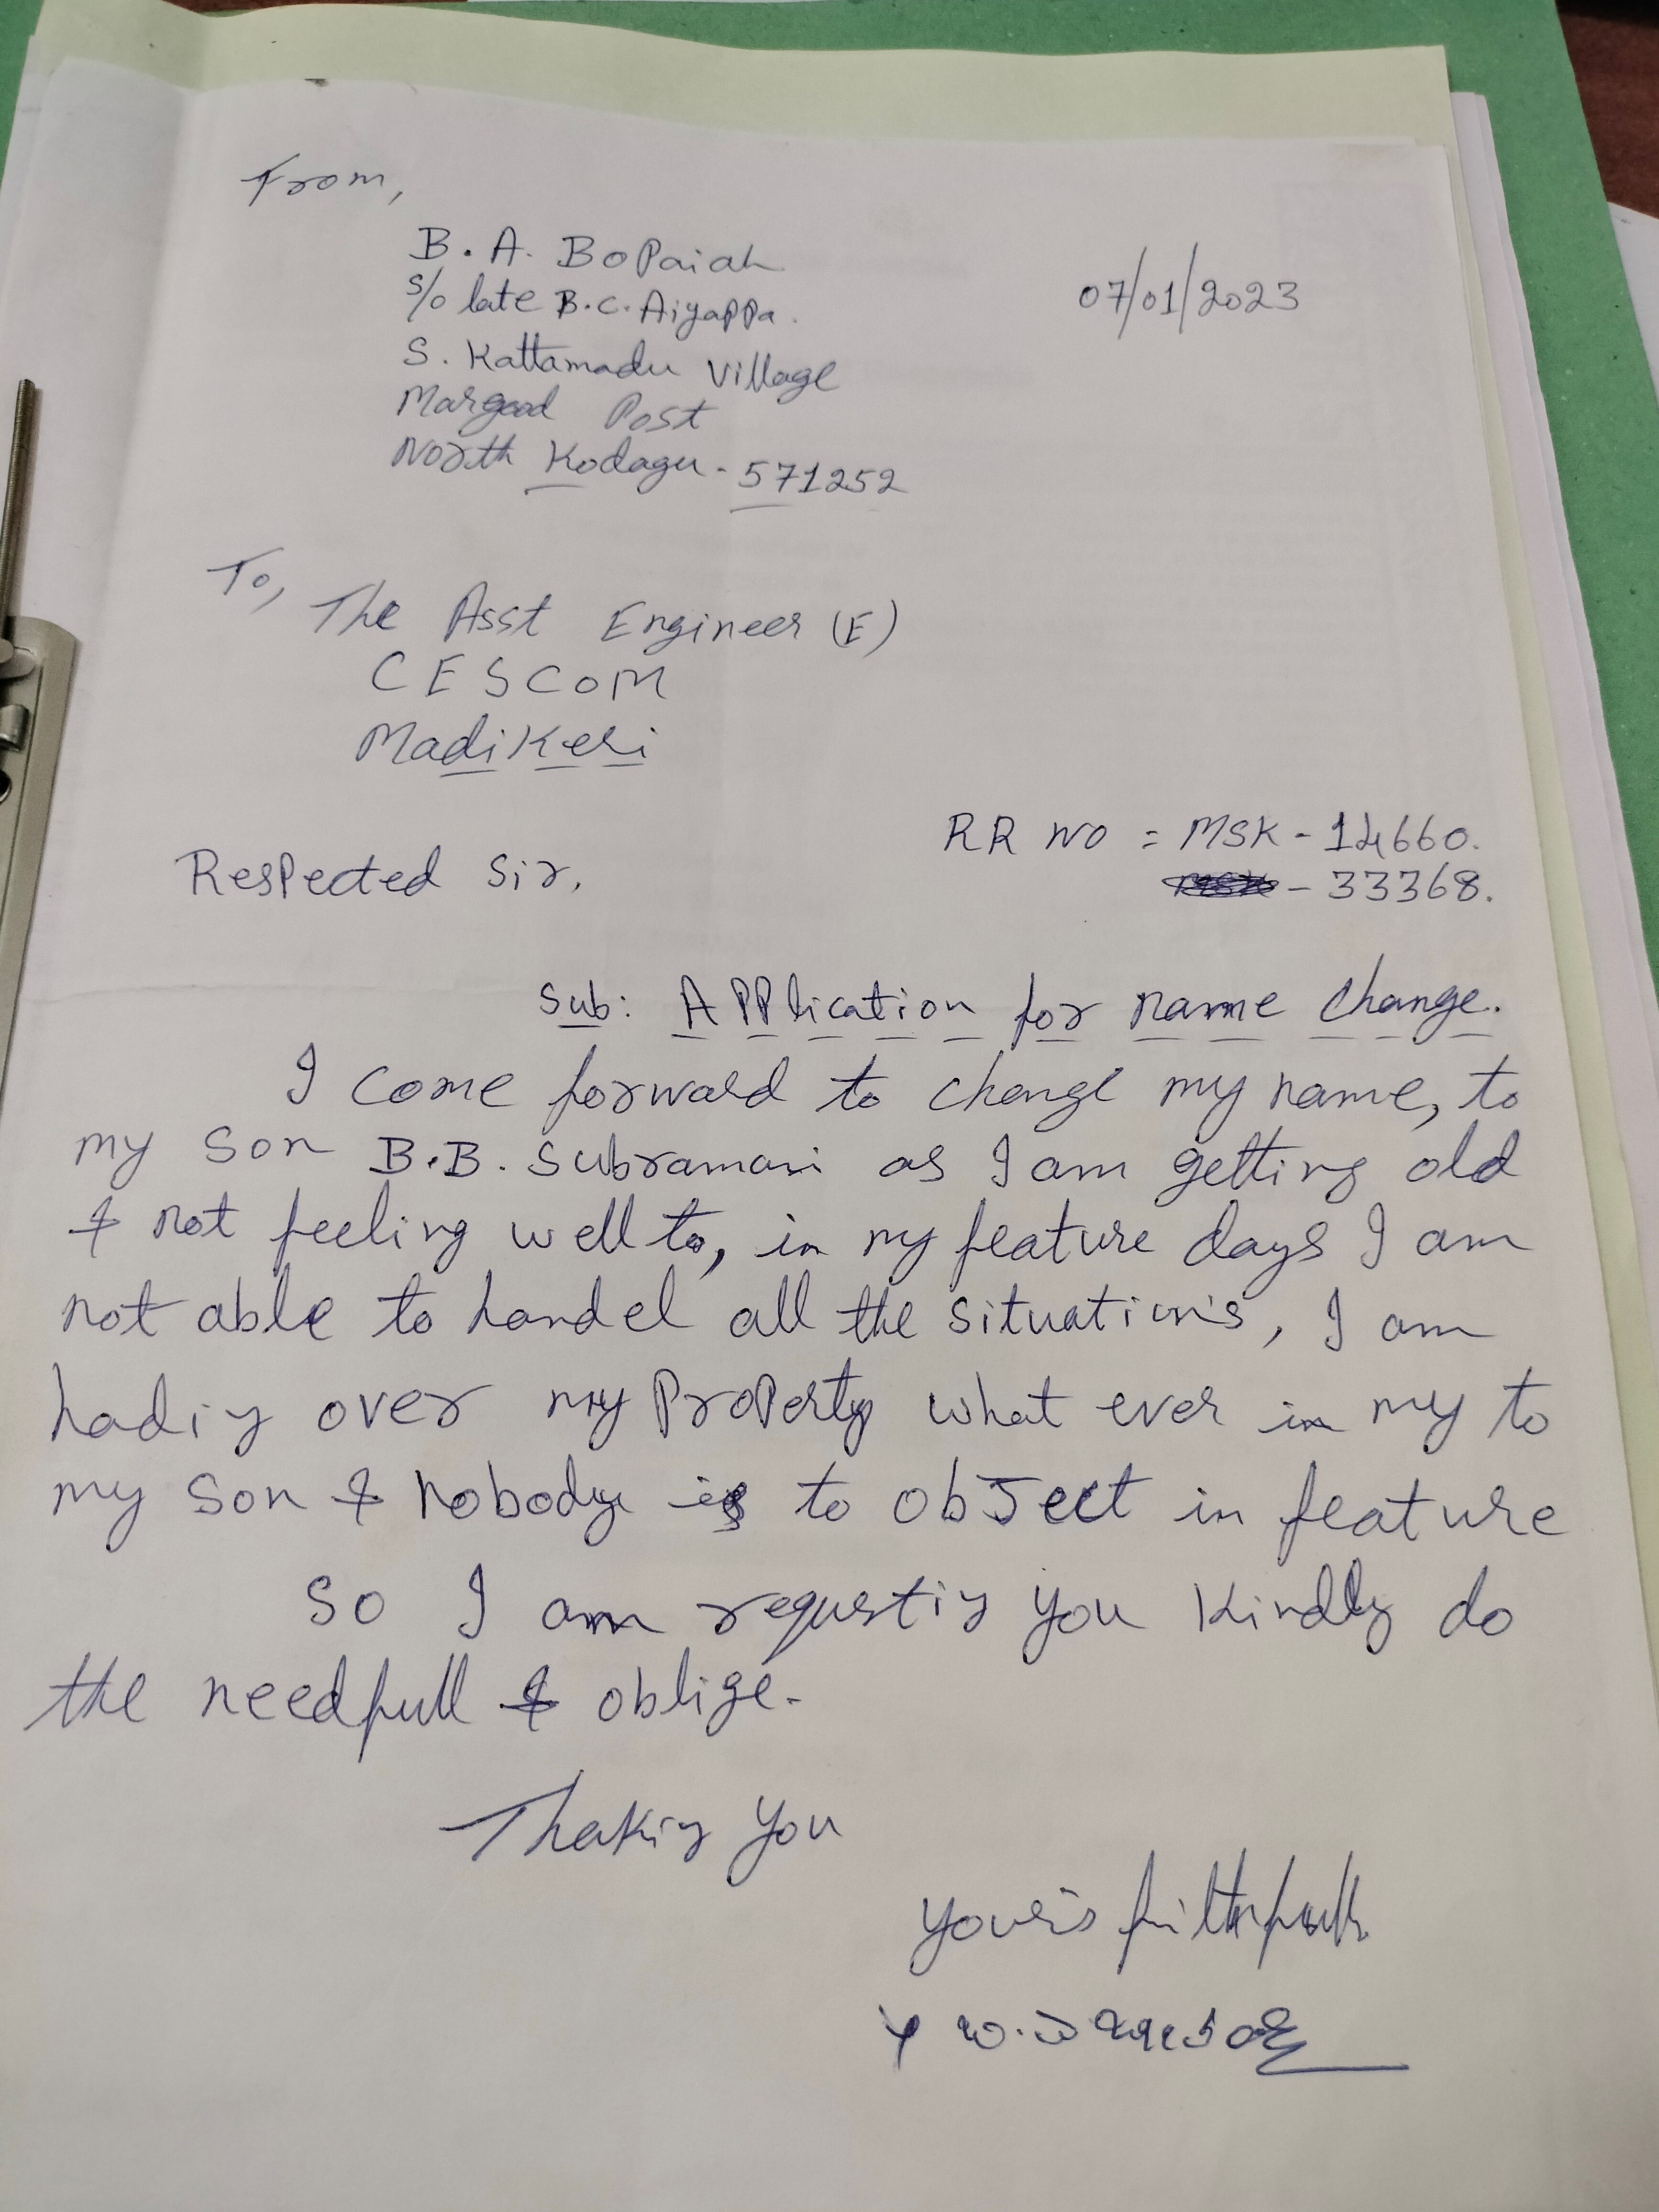 From,
B. A. BoPaiah
07/01/2023
S/o late B.C. Aiyappa.
S. Kattamadu Village
Margood Post
North Kodagu - 571252
To,
The Asst Engineer (E)
CESCOM
Madikeri
RR NO = MSK - 14660.
Respected Sir,
- 33368.
Sub: Application for name change.
I come forward to change my name, to
my son B.B. Subramani as I am getting old
& not feeling well to, in my feature days I am
not able to handel all the situation's, I am
hadig over my Property what ever in my to
my son & nobody is to object in feature
So I am requstig you kindly do
the needfull & oblige.
Thakig you
your's